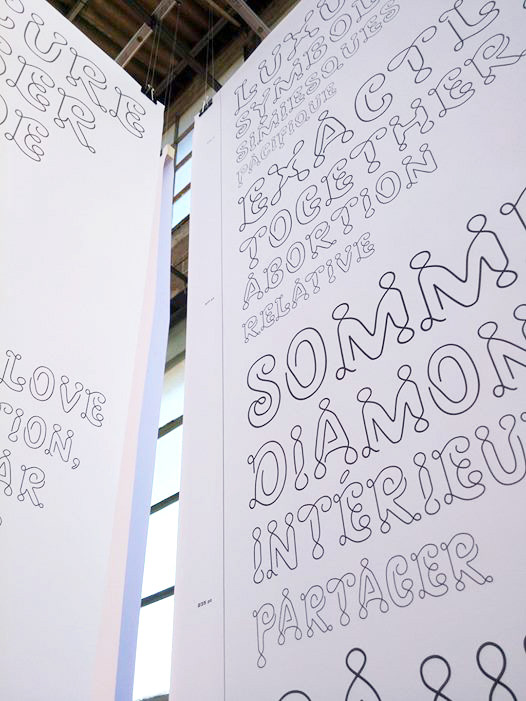 CURE
BER
DE
LOVE
TION,
AR
LUXU
SYMBOL
SIMIESQUES
PACIFIQUE
EXACTL
TOGETHER
ABORTION
RELATIVE
SOMM
DIAMON
INTÉRIEU
PARTAGER